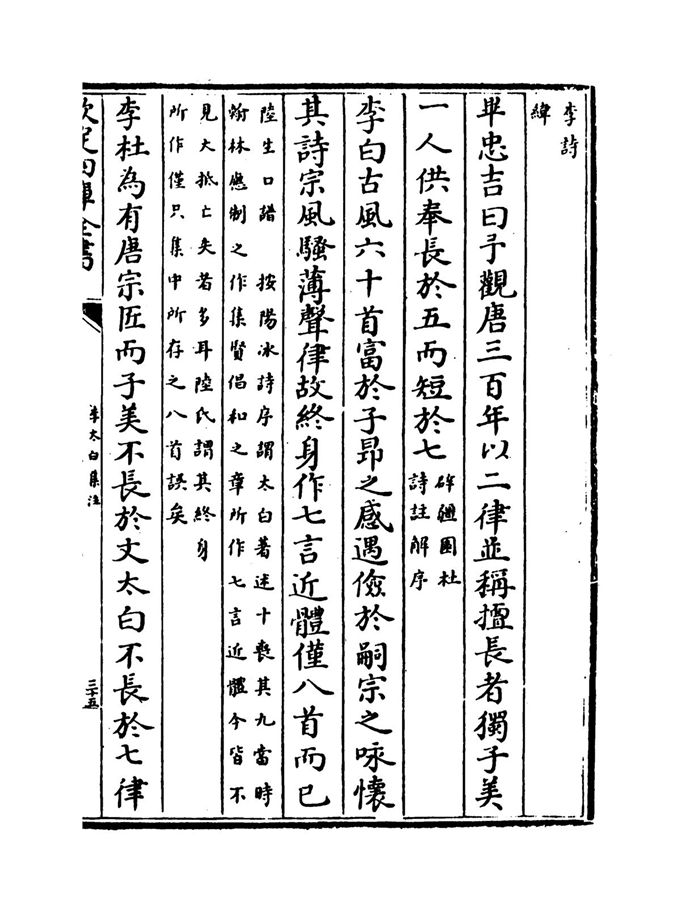 李詩
緯
畢忠吉曰予觀唐三百年以二律並稱擅長者獨子美
一人供奉長於五而短於七
辟疆園杜
詩註解序
李白古風六十首富於子昂之感遇儉於嗣宗之咏懷
其詩宗風騷薄聲律故終身作七言近體僅八首而已
陸生口譜 按陽冰詩序謂太白著述十喪其九當時
翰林應制之作集賢倡和之章所作七言近體今皆不
見大抵亡失者多耳陸氏謂其終身
所作僅只集中所存之八首誤矣
李杜為有唐宗匠而子美不長於文太白不長於七律
欽定四庫全書
李太白集注
三十五